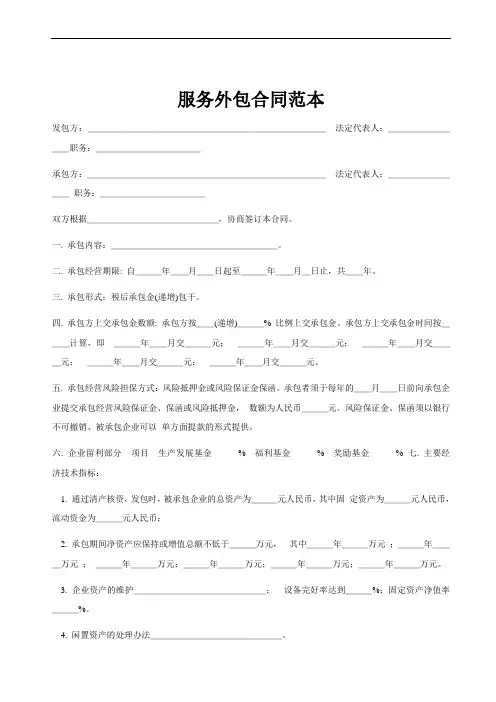 服务外包合同范本
发包方：______________________________________________________ 法定代表人：______________
____职务：________________________
承包方：______________________________________________________ 法定代表人：______________
____ 职务：________________________
双方根据______________________________，协商签订本合同。
一. 承包内容：______________________________________。
二. 承包经营期限: 自______年____月____日起至______年____月__日止，共____年。
三. 承包形式：税后承包金(递增)包干。
四. 承包方上交承包金数额: 承包方按____(递增)______% 比例上交承包金。承包方上交承包金时间按__
____计算，即 ______年____月交______元； ______年____月交______元； ______年____月交____
__元； ______年____月交______元； ______年____月交______元。
五. 承包经营风险担保方式：风险抵押金或风险保证金保函。承包者须于每年的____月____日前向承包企
业提交承包经营风险保证金、保函或风险抵押金， 数额为人民币______元。风险保证金、保函须以银行
不可撤销、被承包企业可以 单方面提款的形式提供。
六. 企业留利部分 项目 生产发展基金 % 福利基金 % 奖励基金 % 七. 主要经
济技术指标：
1. 通过清产核资，发包时，被承包企业的总资产为______元人民币，其中固 定资产为______元人民币，
流动资金为______元人民币；
2. 承包期间净资产应保持或增值总额不低于______万元， 其中______年______万元 ；______年____
__万元 ； ______年______万元；______年______万元；______年______万元；______年______万元。
3. 企业资产的维护______________________________； 设备完好率达到______%；固定资产净值率
______%。
4. 闲置资产的处理办法______________________________。